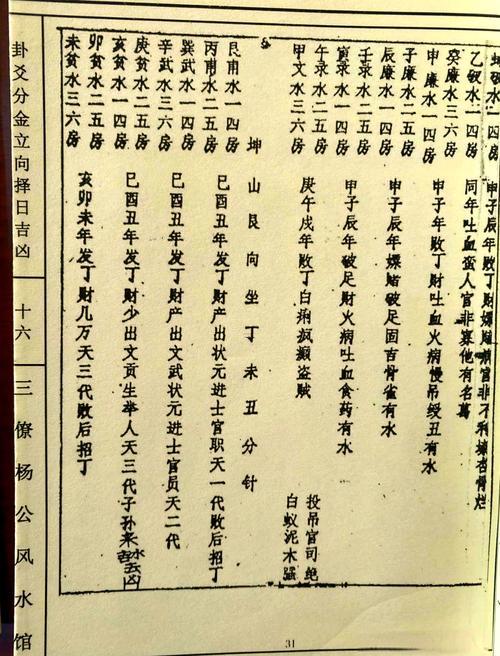 水一四房
甲子辰年败丁财嫖赌官非不利骨烂
乙破水
同年吐血蛮人官非寡他有名
癸廉水三六房
申廉水一四房
甲子年败丁财吐血火病慢吊绶丑有水
子廉水二五房
辰廉水一四房
甲子辰年嫖赌破足固吉骨雀有水
壬录水二五房
寅录水一四房
甲子辰年破足财火病吐血食药有水
午录水二五房
甲文水三六房
庚午戌年败丁白痢疯癫盗贼
投吊官司绝
白蚁泥木强
坤山艮向坐丁未丑分针
艮甫水一四房
丙甫水二五房
巳酉丑年发丁财产出状元进士官职天一代败后招丁
巽武水一四房
辛武水三六房
巳酉丑年发丁财产出文武状元进士官员天二代
庚贫水二五房
亥贫水一四房
巳酉丑年发丁财少出文贡生举人天三代子孙来水去吉凶
卯贫水二五房
未贫水三六房
亥卯未年发丁财几万天三代败后招丁
卦爻分金立向择日吉凶
十六
三僚杨公风水馆
31